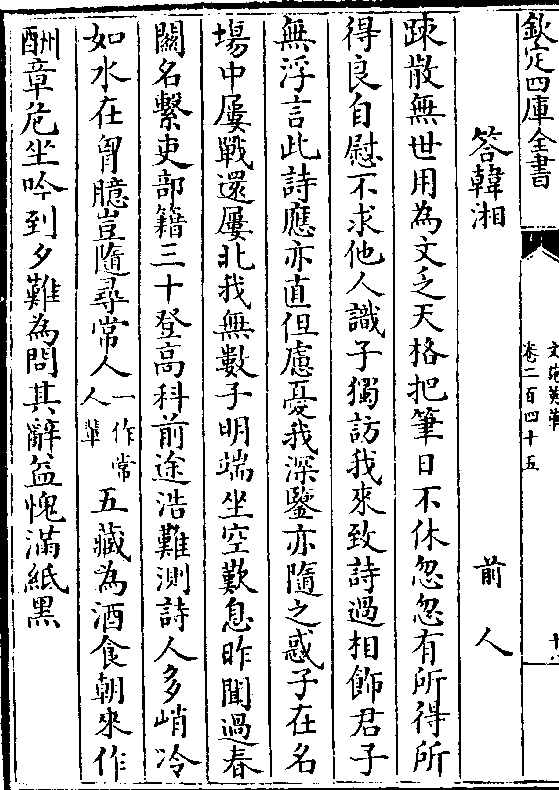 欽定四庫全書
卷二百四十五
答韓湘　前人
踈散無世用為文乏天格把筆日不休忽忽有所得所
得良自慰不求他人識子獨訪我來致詩過相飾君子
無浮言此詩應亦直但慮憂我深鑒亦隨之惑子在名
場中屢戰還屢北我無數子明端坐空歎息昨聞過春
關名繫吏部籍三十登高科前途浩難測詩人多峭冷
如水在胷臆豈隨尋常人一作常人輩五藏為酒食朝來作
酬章危坐吟到夕難為問其辭益愧滿紙黒